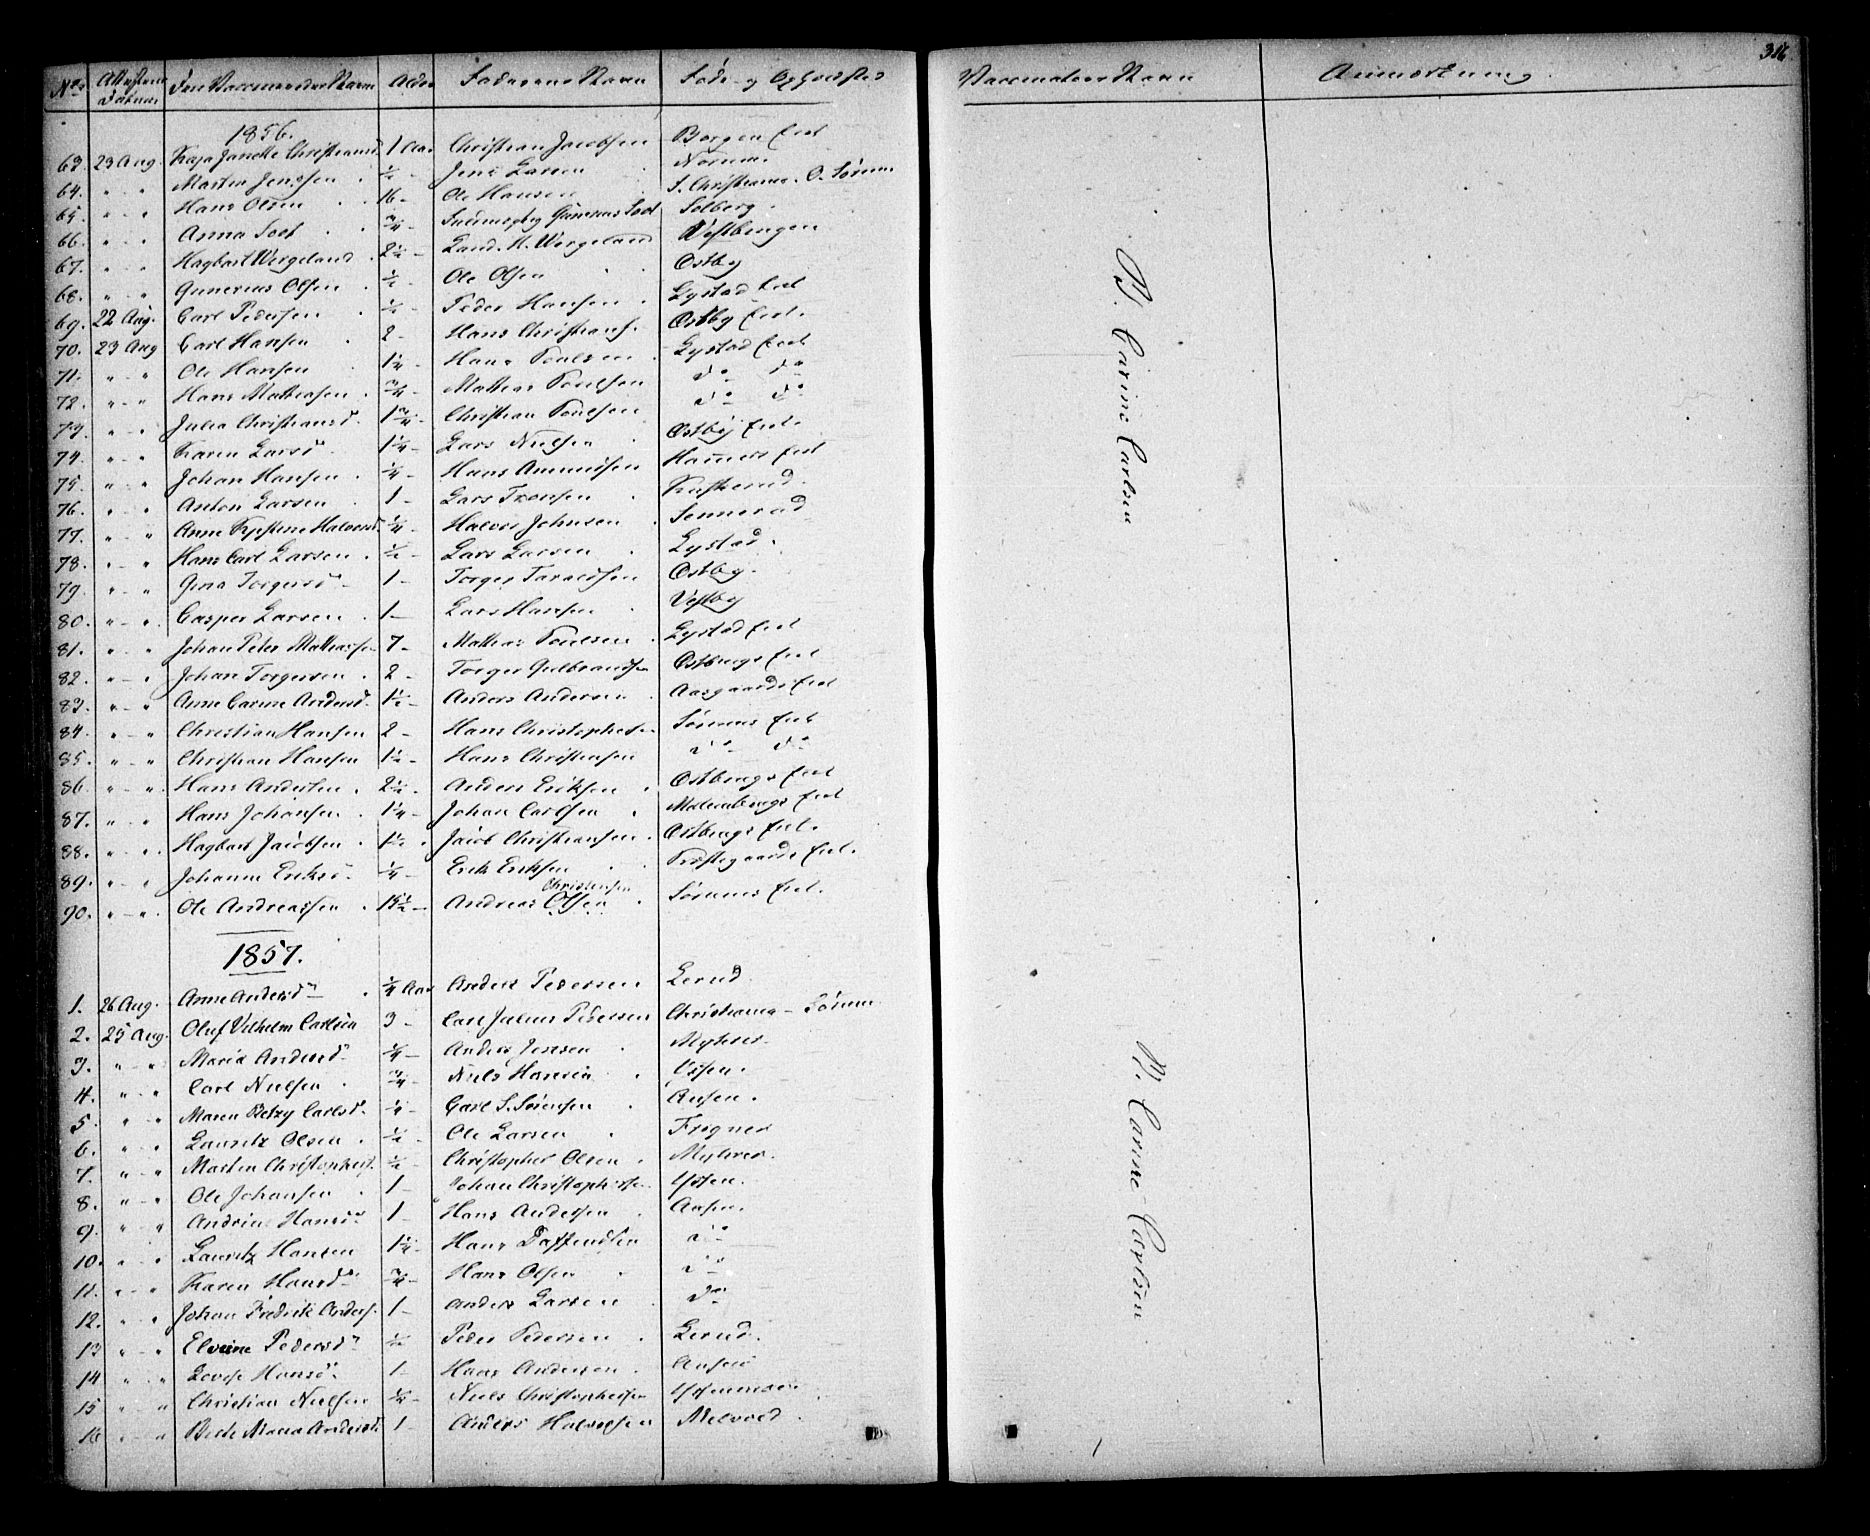 316.
No. Attestens Datum Den Vaccineredes Navn Alder Faderens Navn Føde- og Opholdsted Vaccinateurs Navn Anmærkning
1856.
63. 23 Aug. Kaja Janette Christiansd. 1 Aar Christian Jacobsen Borgen Eiet
64. " - " Martin Jensen ½ - Jens Larsen
65. " - " Hans Olsen 16 - Ole Hansen F. Christiania. O. Sørum
66. " - " Anna ¾ - Solberg.
67. " - " Hagbart Wergeland 2½ - Cand. Wergeland Vestbengen
68. " - " Gunerius Olsen ½ - Ole Olsen Østby
69. 22 Aug. Carl Pedersen ½ - Peder Hansen Lystad Eiet
70. 23 Aug Carl Hansen 2 - Hans Christians. Østby Eiet.
71. " - " Ole Hansen 1¼ - Hans Poulsen Lystad Eiet
72. " - " Hans Mathiasen ¾ - Mathias Poulsen do do
73. " - " Julia Christiansd. 1¾ - Christian Poulsen do do
74. " - " Karen Larsd. 1¼ - Lars Nielsen Østby Eiet.
75. " - " Johan Hansen ¼ - Hans Amundsen Hammers Eiet
76. " - " Anton Larsen 1 - Lars Tronsen
77. " - " Anne Kristine Halvorsd. ¼ - Halvor Johnsen Sennerud
78. " - " Hans Carl Larsen ½ - Lars Larsen Lystad.
79. " - " Gina Torgersd. 1 - Torger Taraldsen Østby.
80. " - " Casper Larsen 1 - Lars Hansen Vestby
81. " - " Johan Peter Mathiassen 7 - Mathias Poulsen Lystad Eiet
82. " - " Johan Torgersen 2 - Torger Gulbrandsen Østbyes Eiet
83. " - " Anne Carine Andersd. 1½ - Anders Andersen Aasgaards Eiet
84. " - " Christian Hansen 2 - Hans Christophersen Sørums Eiet
85. " - " Christian Hansen 1½ - Hans Christensen do do
86. " - " Hans Andersen 2½ - Anders Eriksen Østbyes Eiet
87. " - " Hans Johansen 1¼ - Johan Carlsen Eiet
88. " - " Hagbart Jacobsen 1½ - Jacob Christiansen Østbyes Eiet.
89. " - " Johanne Eriksd. ¼ - Erik Eriksen Præstegaards Eiet.
90. " - " Ole Andreassen 15½ - Andreas Olsen Christensen Sørums Eiet.
B. Carine Carlsen
1857.
1. 26 Aug. Anne Andersd. ¼ Aar Anders Pedersen Lerud
2. 25 Aug. Oluf Vilhelm Carlsen 3 - Carl Julius Pedersen Christiania - Sørum
3. " - " Maria Andersd. ¼ - Anders Jensen Myhrer
4. " - " Carl Nielsen ¾ - Niels Hansen Ussen.
5. " - " Maren Betzy Carlsd. ¼ - Carl S. Sørensen Ausen.
6. " - " Lauritz Olsen ½ - Ole Larsen Frogner
7. " - " Martin Christophers. ½ - Christopher Olsen Myhrer.
8. " - " Ole Johansen 1 - Johan Christophersen Ussen.
9. " - " Andrine Hansd. 1 - Hans Andersen Ausen.
10. " - " Lauritz Hansen 1¼ - Hans do
11. " - " Karen Hansd. ¾ - Hans Olsen do
12. " - " Johan Fredrik Anders. 1 - Anders Larsen do
13 " - " Elvine Pedersd. ½ - Peder Pedersen Lerud.
14 " - " Lovise Hansd. 1 - Hans Andersen Ausen
15 " - " Christian Nielsen ¼ - Niels Christophersen
16 " - " Berte Maria Andersd. 1 - Anders Halvorsen Melvold.
B. Carine Carlsen